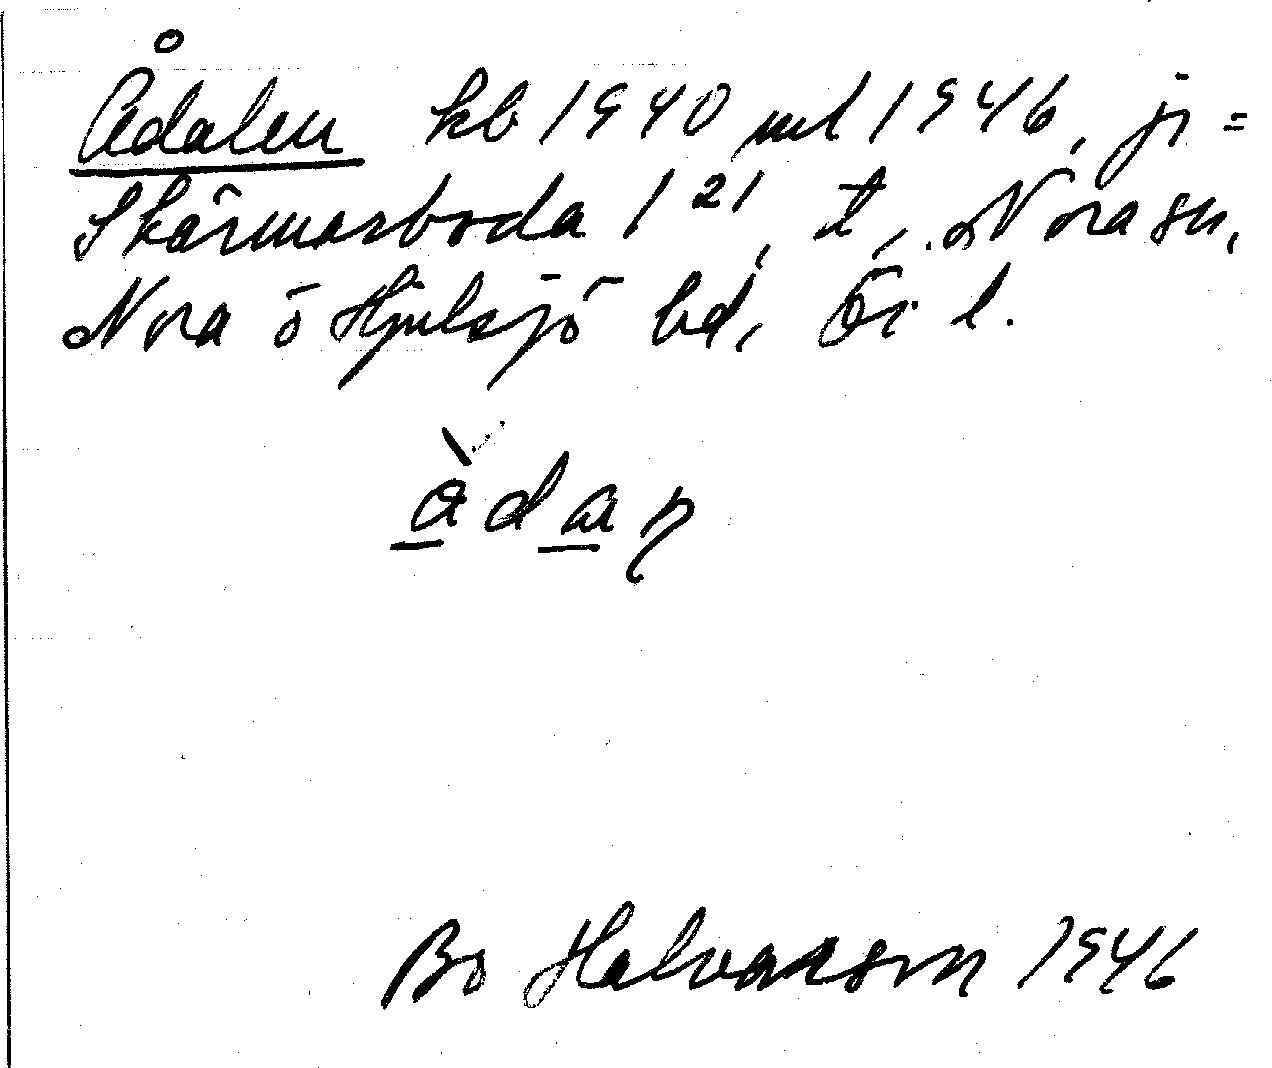 Ådalen kb 1940 ml 1946, ji =
Skärmarboda 1 21, t, Nora sn,
Nora o Hjulsjö bd, Ör l.
Bo Halvarson 1946